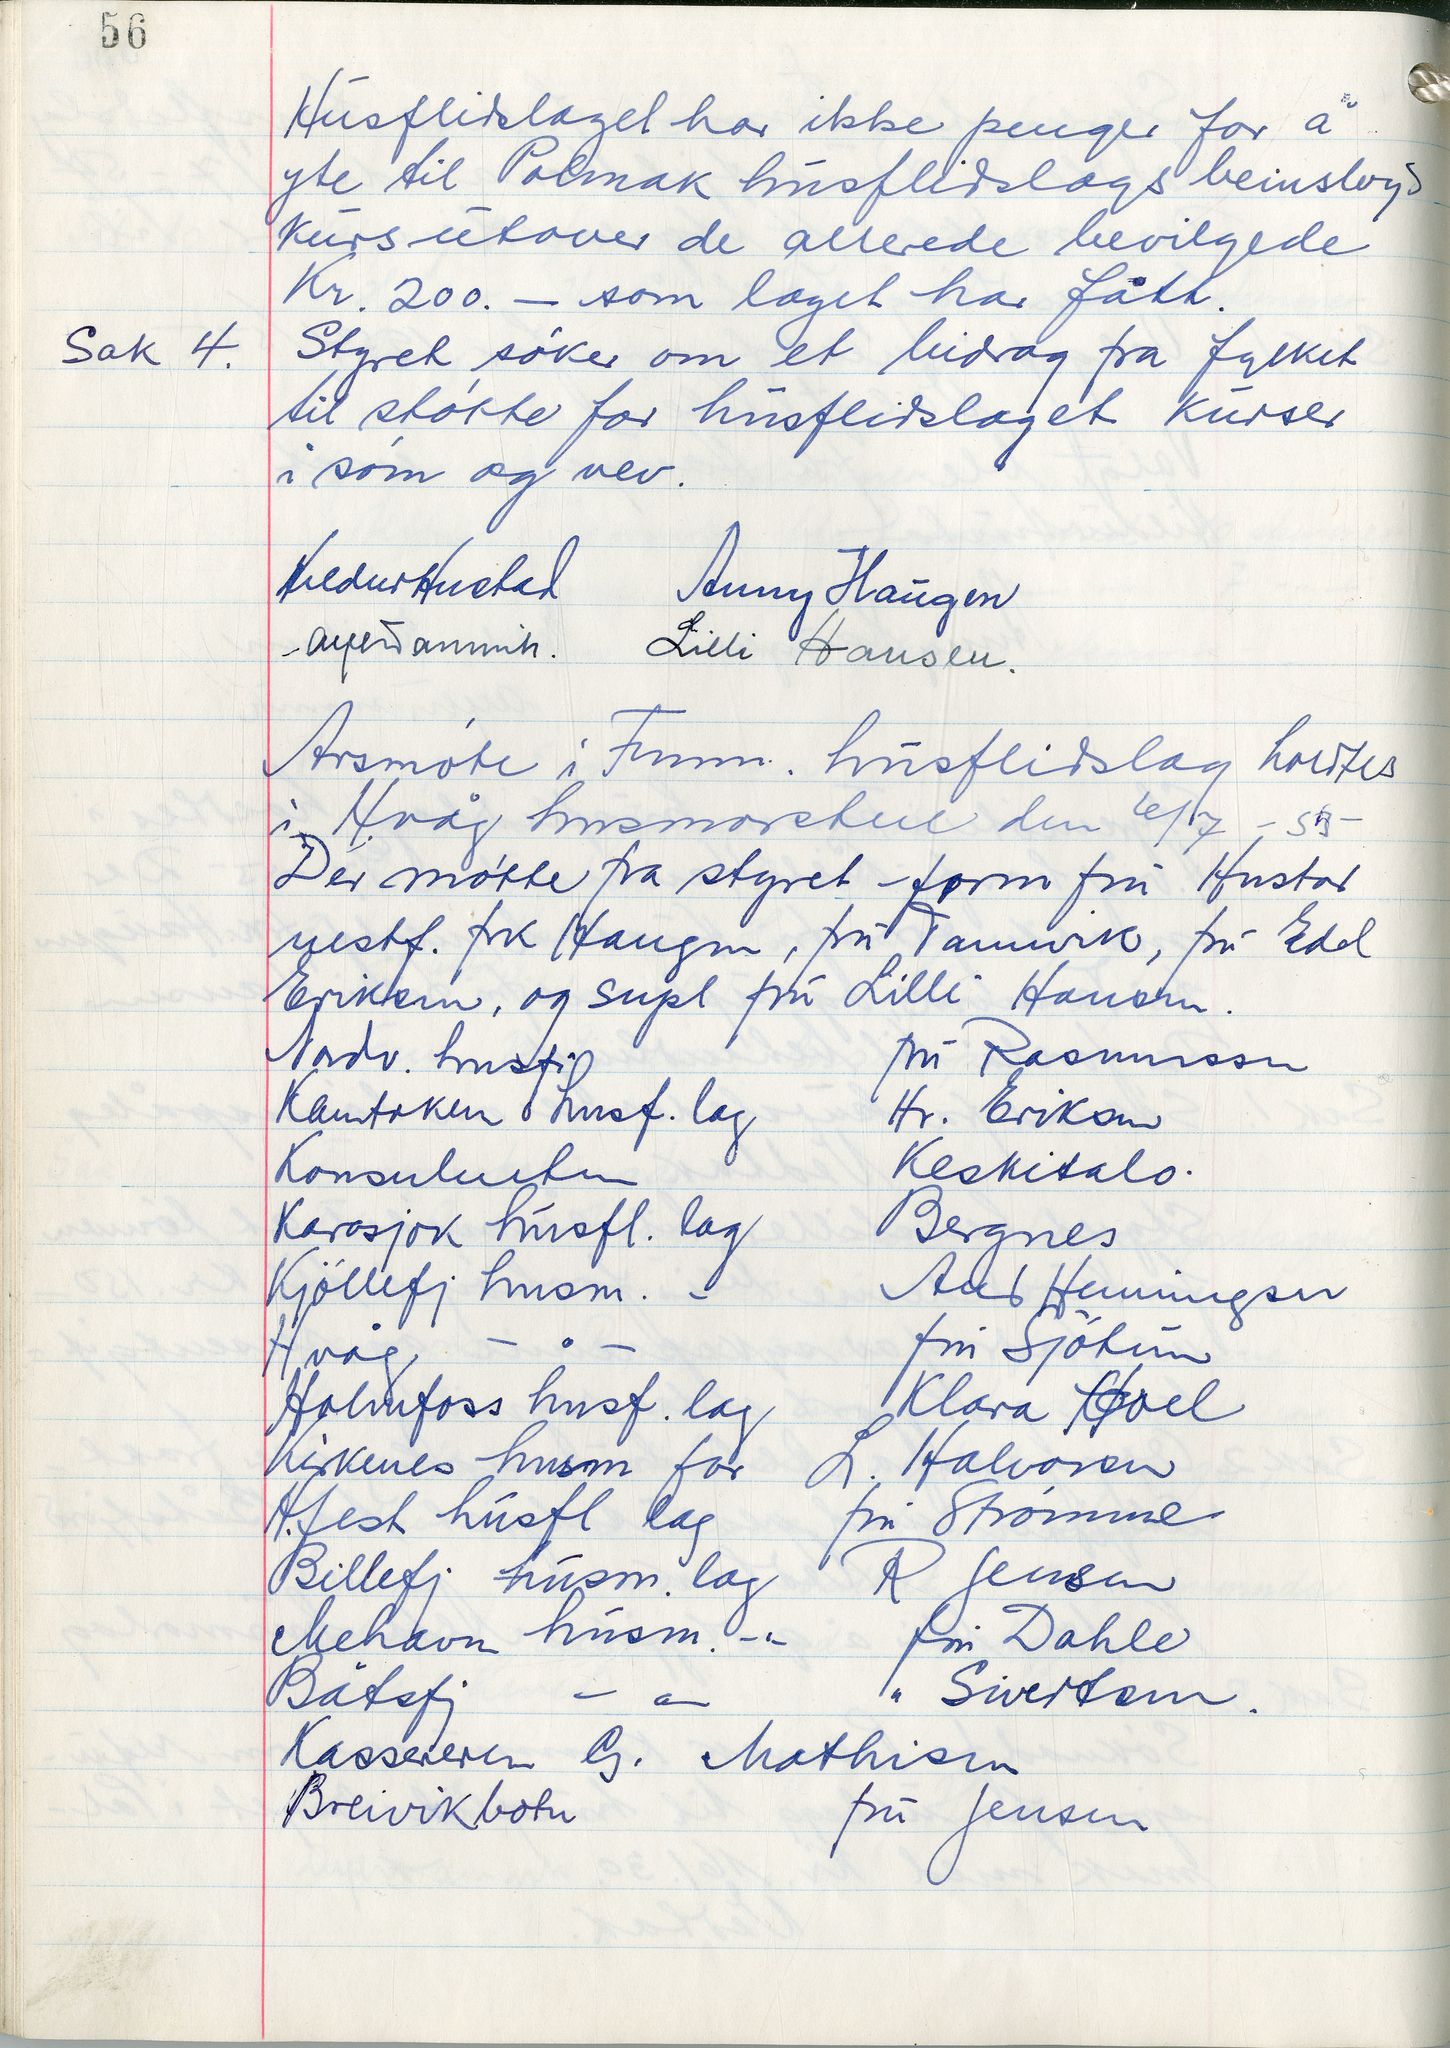 56
Husflidslaget har ikke penger for å
yte til Polmak husflidslags beinsløyd
kurs utover de allerede bevilgede
Kr. 200. — som laget har fått.
Sak 4. Styret søker om et bidrag fra fylket
til støtte for husflidslaget kurser
i søm og vev.
Hustad Anny Haugen
Lilli Hansen.
Årsmöte i Finnm. husflidslag holdtes
i H.våg husmorskule den /7 - 55-
Der møtte fra styret - form fru Hustad
nestf. frk Haugen, fru Tannvik, fru Edel
Eriksen, og supl fru Lilli Hansen.
Nordv. husfl fru Rasmussen
Kautoken husf. lag Hr. Eriksen
Konsulenten Keskitalo.
Karasjok husfl. lag Bergnes
Kjöllefj husm. - Aud Henningsen
H våg — " — fru Sjötun
Holmfoss husf. lag Klara Hoel
Kirkenes husm for L. Halvorsen
H.fest husfl lag fru Strømme
Billefj husm. lag R Jensen
Mehavn husm. -"- fru Dahle
Båtsfj - " - " Sivertsen.
Kassereren G. Mathisen
Breivikbotn fru Jensen